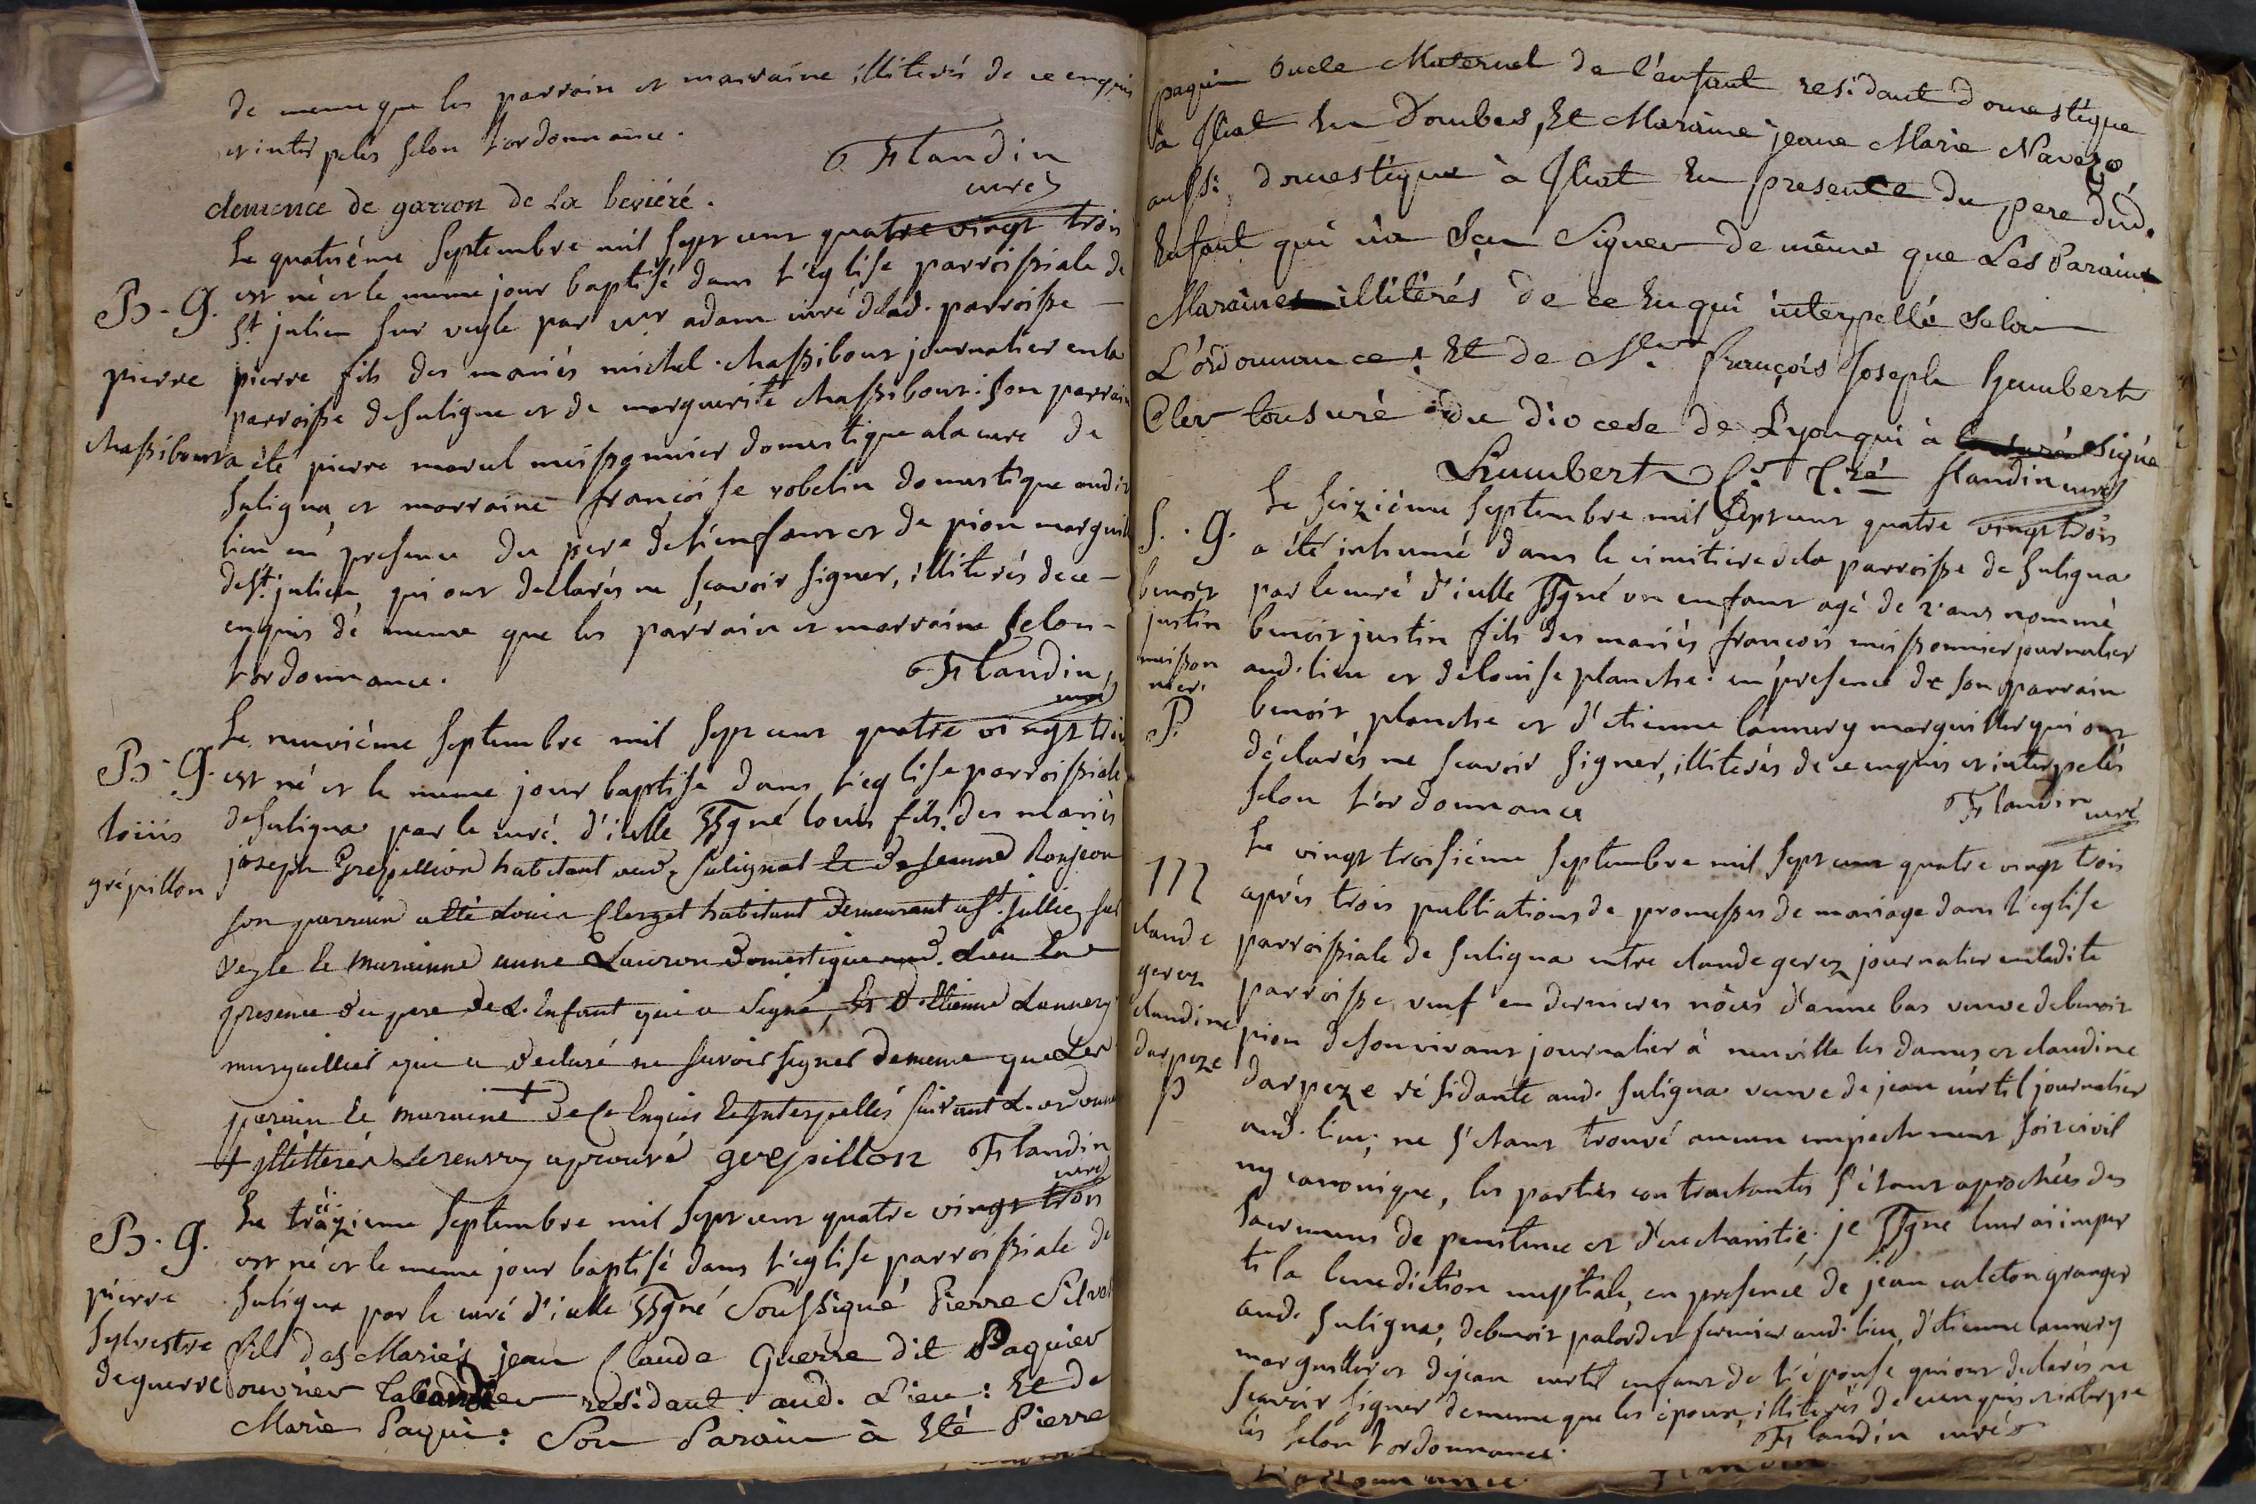 de meme que les parrain et marraine illiterés de ce enquis
et interpelés selon l'ordonnance.
Flandin
curé
clemence de garron de La beviéré.
Le quatriéme septembre mil sept cent quatre vingt trois
B. G. est né et le meme jour baptisé dans l'eglise parroissiale de
St julien sur veyle par mr adam curé dlad. parroisse
pierre pierre fils des mariés michel chassibout journalier en la
parroisse de suligna et de marguerite chassibout: son parrain
chassibout a été pierre morel meissonnier domestique a la cure de
suligna, et marraine françoise robelin domestique audit
lieu en presence du pere de l'enfant et de pion marguil
de St julien, qui ont declarés ne sçavoir signer, illiterés de ce
enquis de meme que les parrain et marraine selon
l'ordonnance.
Flandin
curé
Le neuviéme septembre mil sept cent quatre vingt trois
B. G. est né et le meme jour baptisé dans l'eglise parroissiale
louis de suligna par le curé d'icelle ssgné louis fils des mariés
joseph Grepillion habitant aud. sulignat et de jeanne Ronjeon
grépillon
son parrain a été Louis Clerget habitant demeurant a St. jullien sur
veyle et marainne anne Lauron domestique aud. Lieu en la
presence du pere de L'Enfant qui a signé, et d'Etienne Lannery
marguillier qui a declaré ne savoir signer de meme que Les
parain et maraine + de ce Enquis et Interpellés suivant L'ordonna
+ illetterés Le renvoy aprouvé grepillon Flandin
curé
Le träizieme septembre mil sept cent quatre vingt trois
B. G. est né et le meme jour baptisé dans l'eglise parroissiale de
pierre suligna par le curé d'icelle ssgné Soussigné Pierre Silve
sylvestre fils des Mariés jean Claude Guerre dit Paquier
deguerre ouvrier resident aud. Lieu: Et de
Marie Paqui: Son Parain à Eté Pierre
paquin Oncle Maternel de l'enfant residant domestique
à Illiat En Dombes, Et Maraine jeane Marie Navezo
aussi domestique à Illiat En presence du pere dud.
Enfant qui n'a Sçu Signer de même que Les Parain
Maraine illitérés de ce Enqui interpellé Selon
L'ordonnance: Et de Sr. françois Joseph humbert
Cler tonsuré du diocese de Lyon qui à signé
humbert Cr. T.ré flandin curé
Le seiziéme septembre mil sept cent quatre vingt trois
S. G. a été inhumé dans le cimitiere de la parroisse de suligna
benoit par le curé d'icelle ssgné un enfant agé de 2 ans nommé
justin benoit justin fils des mariés francois meissonnier journalier
meisson aud. lieu et de louise planche: en presence de son parrain
nier.
P. benoit planche et d'etienne lannery marguiller qui ont
déclarés ne scavoir signer, illiterés de ce enquis et interpelés
selon l'ordonnance
Flandin curé
Le vingt troisiéme septembre mil sept cent quatre vingt trois
après trois publications de promesses de mariage dans l'eglise
claude parroissiale de suligna entre claude gerez journalier en ladite
gerez parroisse, veuf en dernieres nôces d'anne bas veuve de benoit
claudine pion de son vivant journalier à neuville les dames et claudine
darpeze darpeze résidante aud. suligna veuve de jean curtil journalier
P aud. lieu; ne s'étant trouvé aucun empechement soit civil
ny canonique, les parties contractantes s'étant aprochées des
sacremens de penitence et d'eucharistie. je ssgné leur ai impar
ti la benediction nuptiale, en presence de jean caleton granger
aud. suligna, de benoit palordet fermier aud. lieu, d'etienne lannery
marguiller et de jean curtil enfant de l'épouse qui ont declarés ne
scavoir signer de meme que les époux, illiterés de ce enquis et interpe
lés selon l'ordonnance.
Flandin curé